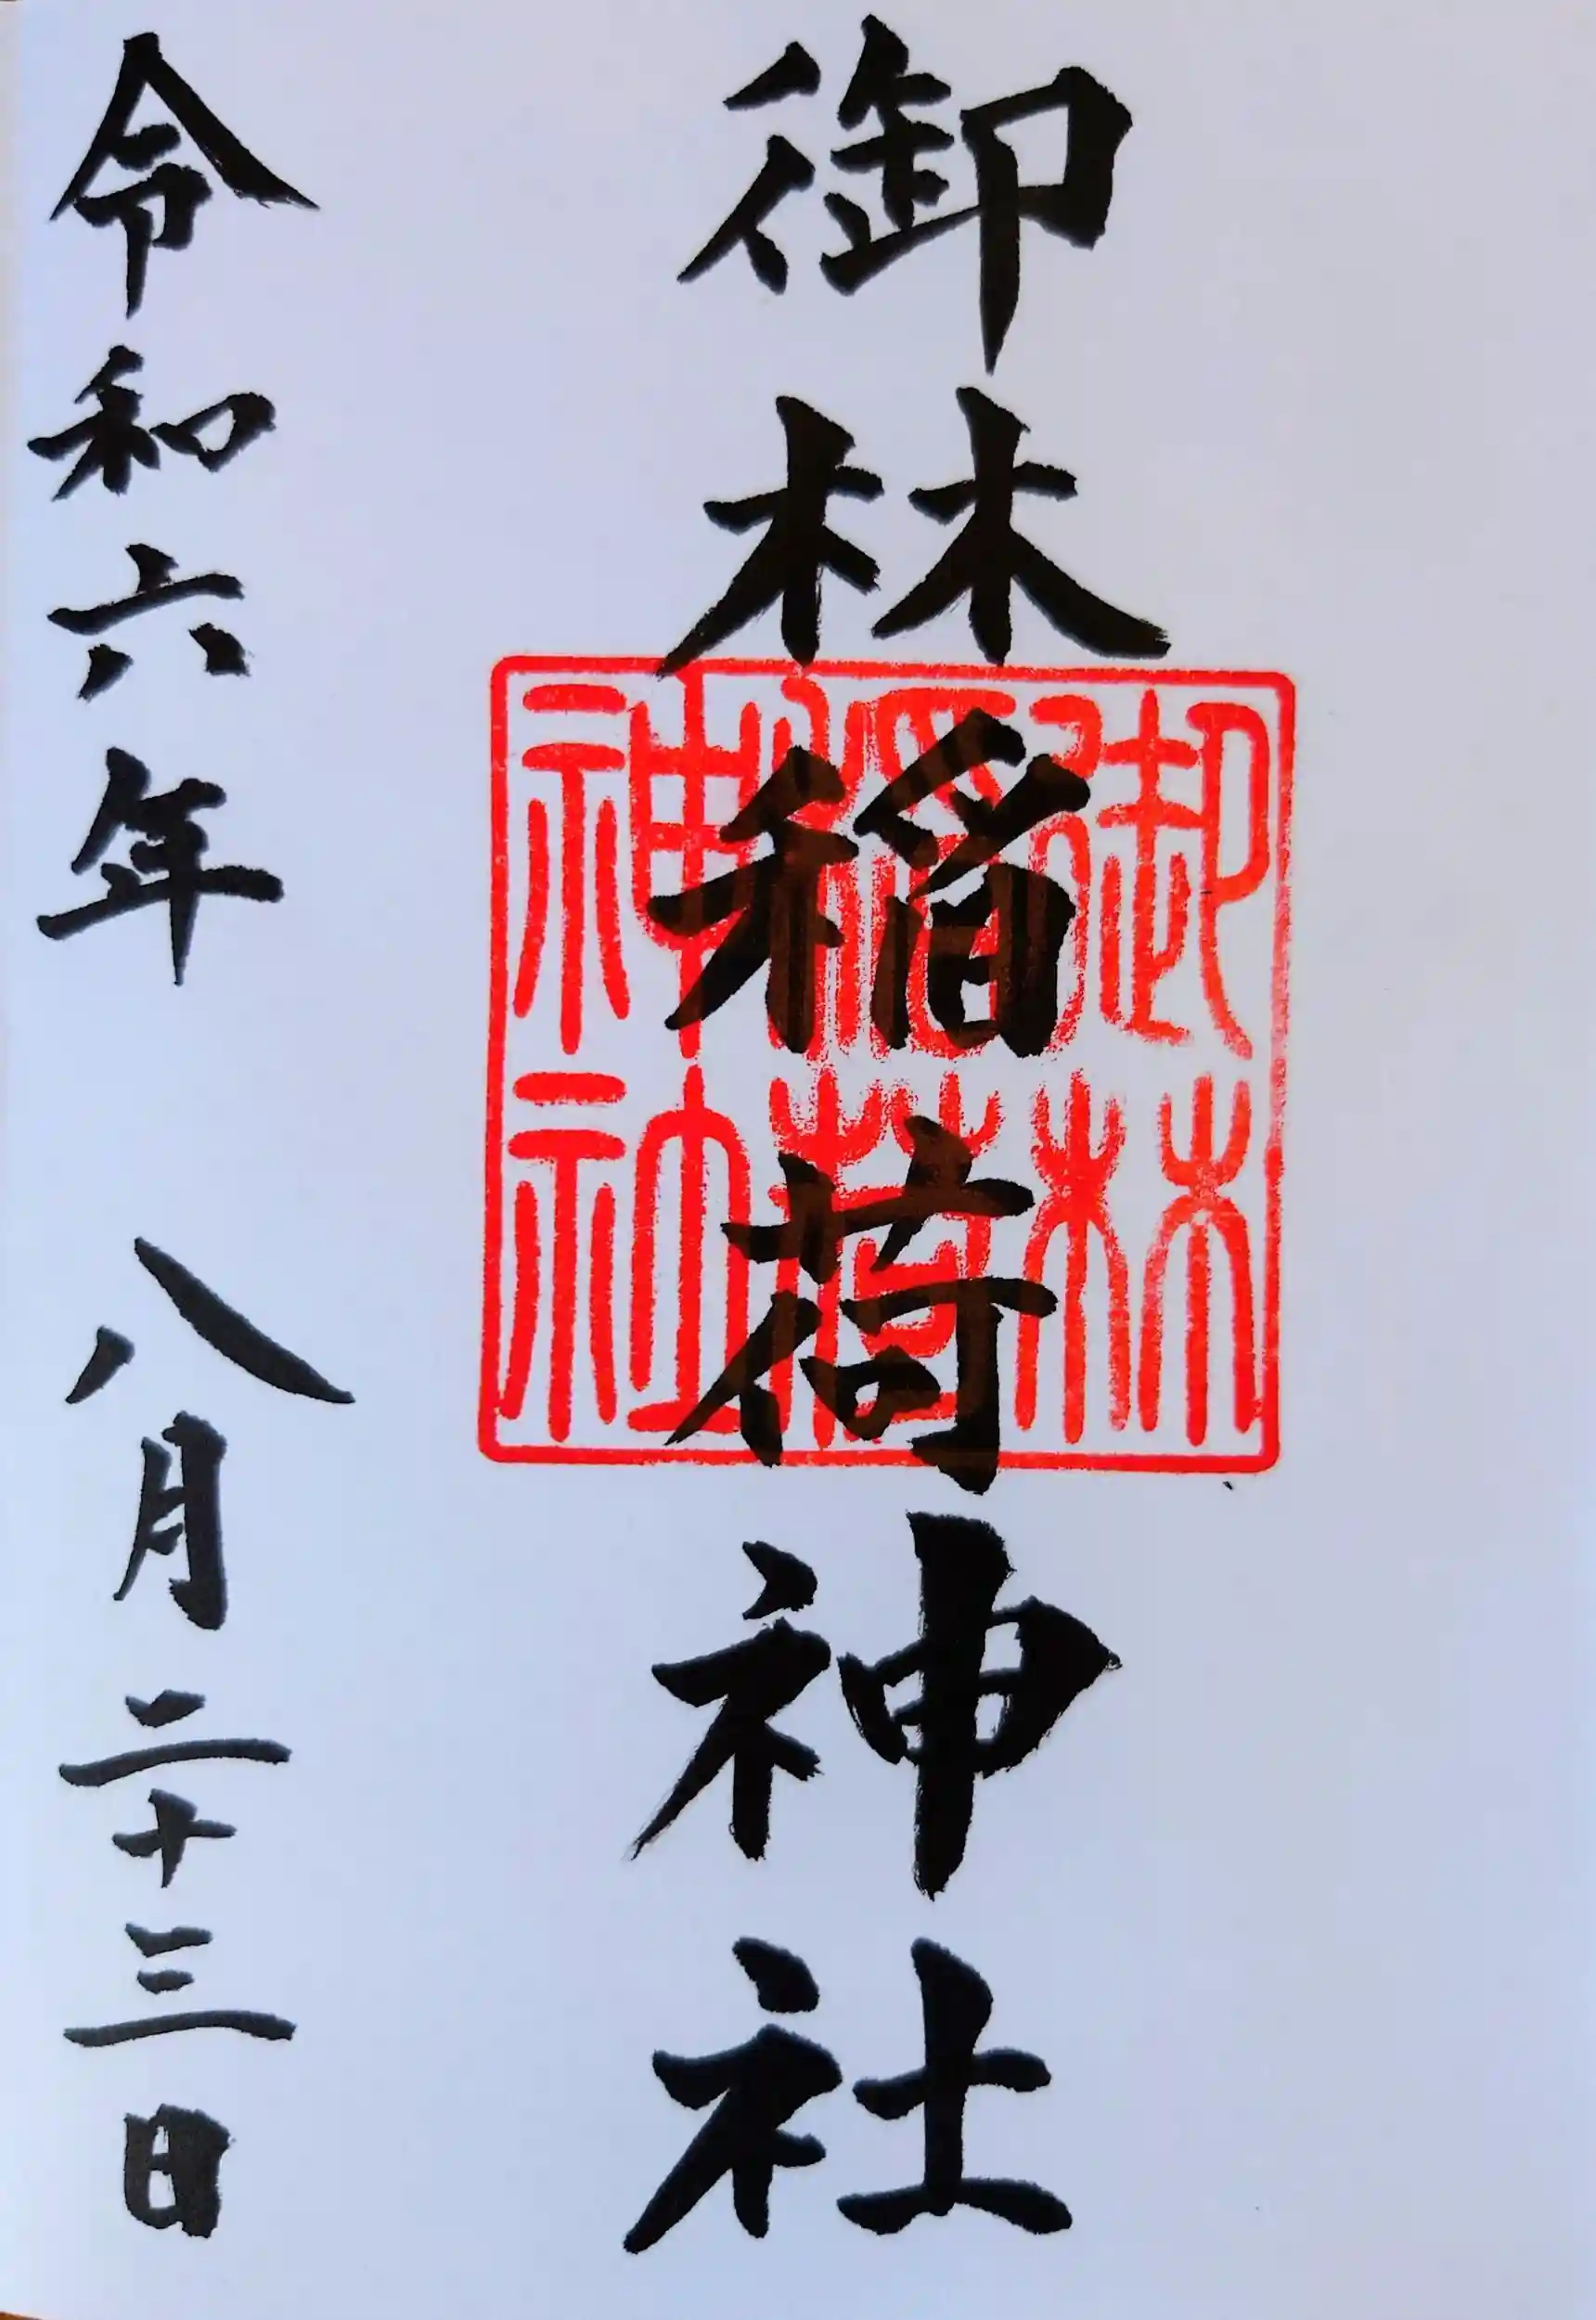 御林稲荷神社
御林
稲荷
神社
令和六年 八月二十三日